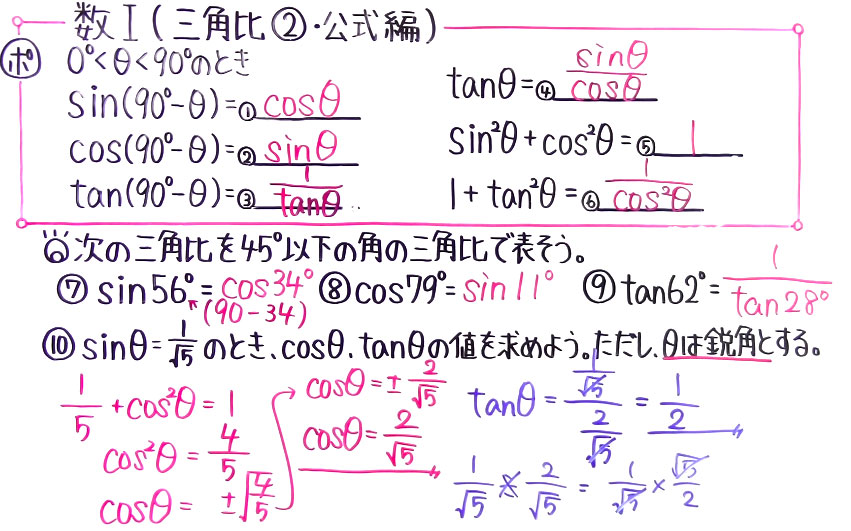 数Ⅰ(三角比②・公式編)
ポ 0°<θ<90°のとき
sin(90°-θ)=①cosθ
cos(90°-θ)=②sinθ
tan(90°-θ)=③1/tanθ
tanθ=④sinθ/cosθ
sin²θ+cos²θ=⑤1
1+tan²θ=⑥1/cos²θ
次の三角比を45°以下の角の三角比で表そう。
⑦sin56°=cos34° ⑧cos79°=sin11° ⑨tan62°=1/tan28°
(90-34)
⑩sinθ=1/√5のとき、cosθ、tanθの値を求めよう。ただし、θは鋭角とする。
1/5+cos²θ=1
cos²θ=4/5
cosθ=±√4/5
cosθ=±2/√5
cosθ=2/√5
tanθ=1/√5/2/√5=1/2
1/√5÷2/√5=1/√5×√5/2